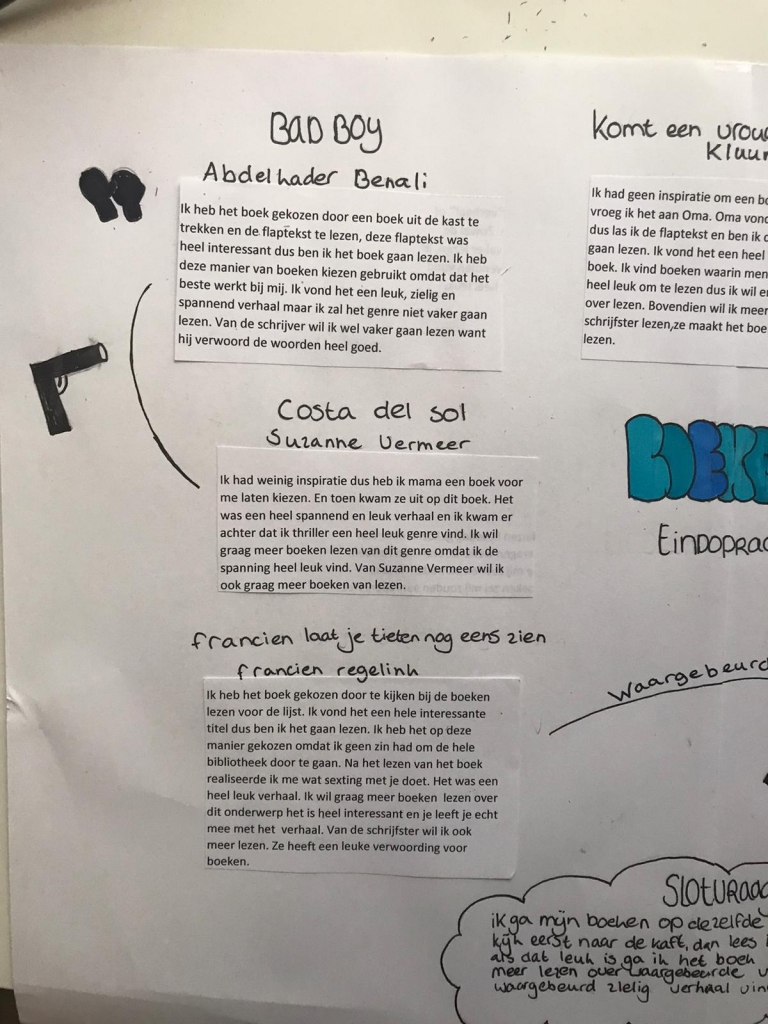 BAD BOY
Abdelhader Benali
Ik heb het boek gekozen door een boek uit de kast te
trekken en de flaptekst te lezen, deze flaptekst was
heel interessant dus ben ik het boek gaan lezen. Ik heb
deze manier van boeken kiezen gebruikt omdat dat het
beste werkt bij mij. Ik vond het een leuk, zielig en
spannend verhaal maar ik zal het genre niet vaker gaan
lezen. Van de schrijver wil ik wel vaker gaan lezen want
hij verwoord de woorden heel goed.
Costa del sol
Suzanne Vermeer
Ik had weinig inspiratie dus heb ik mama een boek voor
me laten kiezen. En toen kwam ze uit op dit boek. Het
was een heel spannend en leuk verhaal en ik kwam er
achter dat ik thriller een heel leuk genre vind. Ik wil
graag meer boeken lezen van dit genre omdat ik de
spanning heel leuk vind. Van Suzanne Vermeer wil ik
ook graag meer boeken van lezen.
francien laat je tieten nog eens zien
francien regelinh
Ik heb het boek gekozen door te kijken bij de boeken
lezen voor de lijst. Ik vond het een hele interessante
titel dus ben ik het gaan lezen. Ik heb het op deze
manier gekozen omdat ik geen zin had om de hele
bibliotheek door te gaan. Na het lezen van het boek
realiseerde ik me wat sexting met je doet. Het was een
heel leuk verhaal. Ik wil graag meer boeken lezen over
dit onderwerp het is heel interessant en je leeft je echt
mee met het verhaal. Van de schrijfster wil ik ook
meer lezen. Ze heeft een leuke verwoording voor
boeken.
Komt een
Ik had geen inspiratie om een
vroeg ik het aan Oma. Oma
dus las ik de flaptekst en ben ik
gaan lezen. Ik vond het een heel
boek. Ik vind boeken waarin
heel leuk om te lezen dus ik wil
over lezen. Bovendien wil ik meer
schrijfster lezen,ze maakt het
lezen.
ik ga mijn boeken op dezelfde
kijk eerst naar de kaft, dan lees
als dat leuk is ga ik het boek
meer lezen over waargebeurde
waargebeurd zielig verhaal